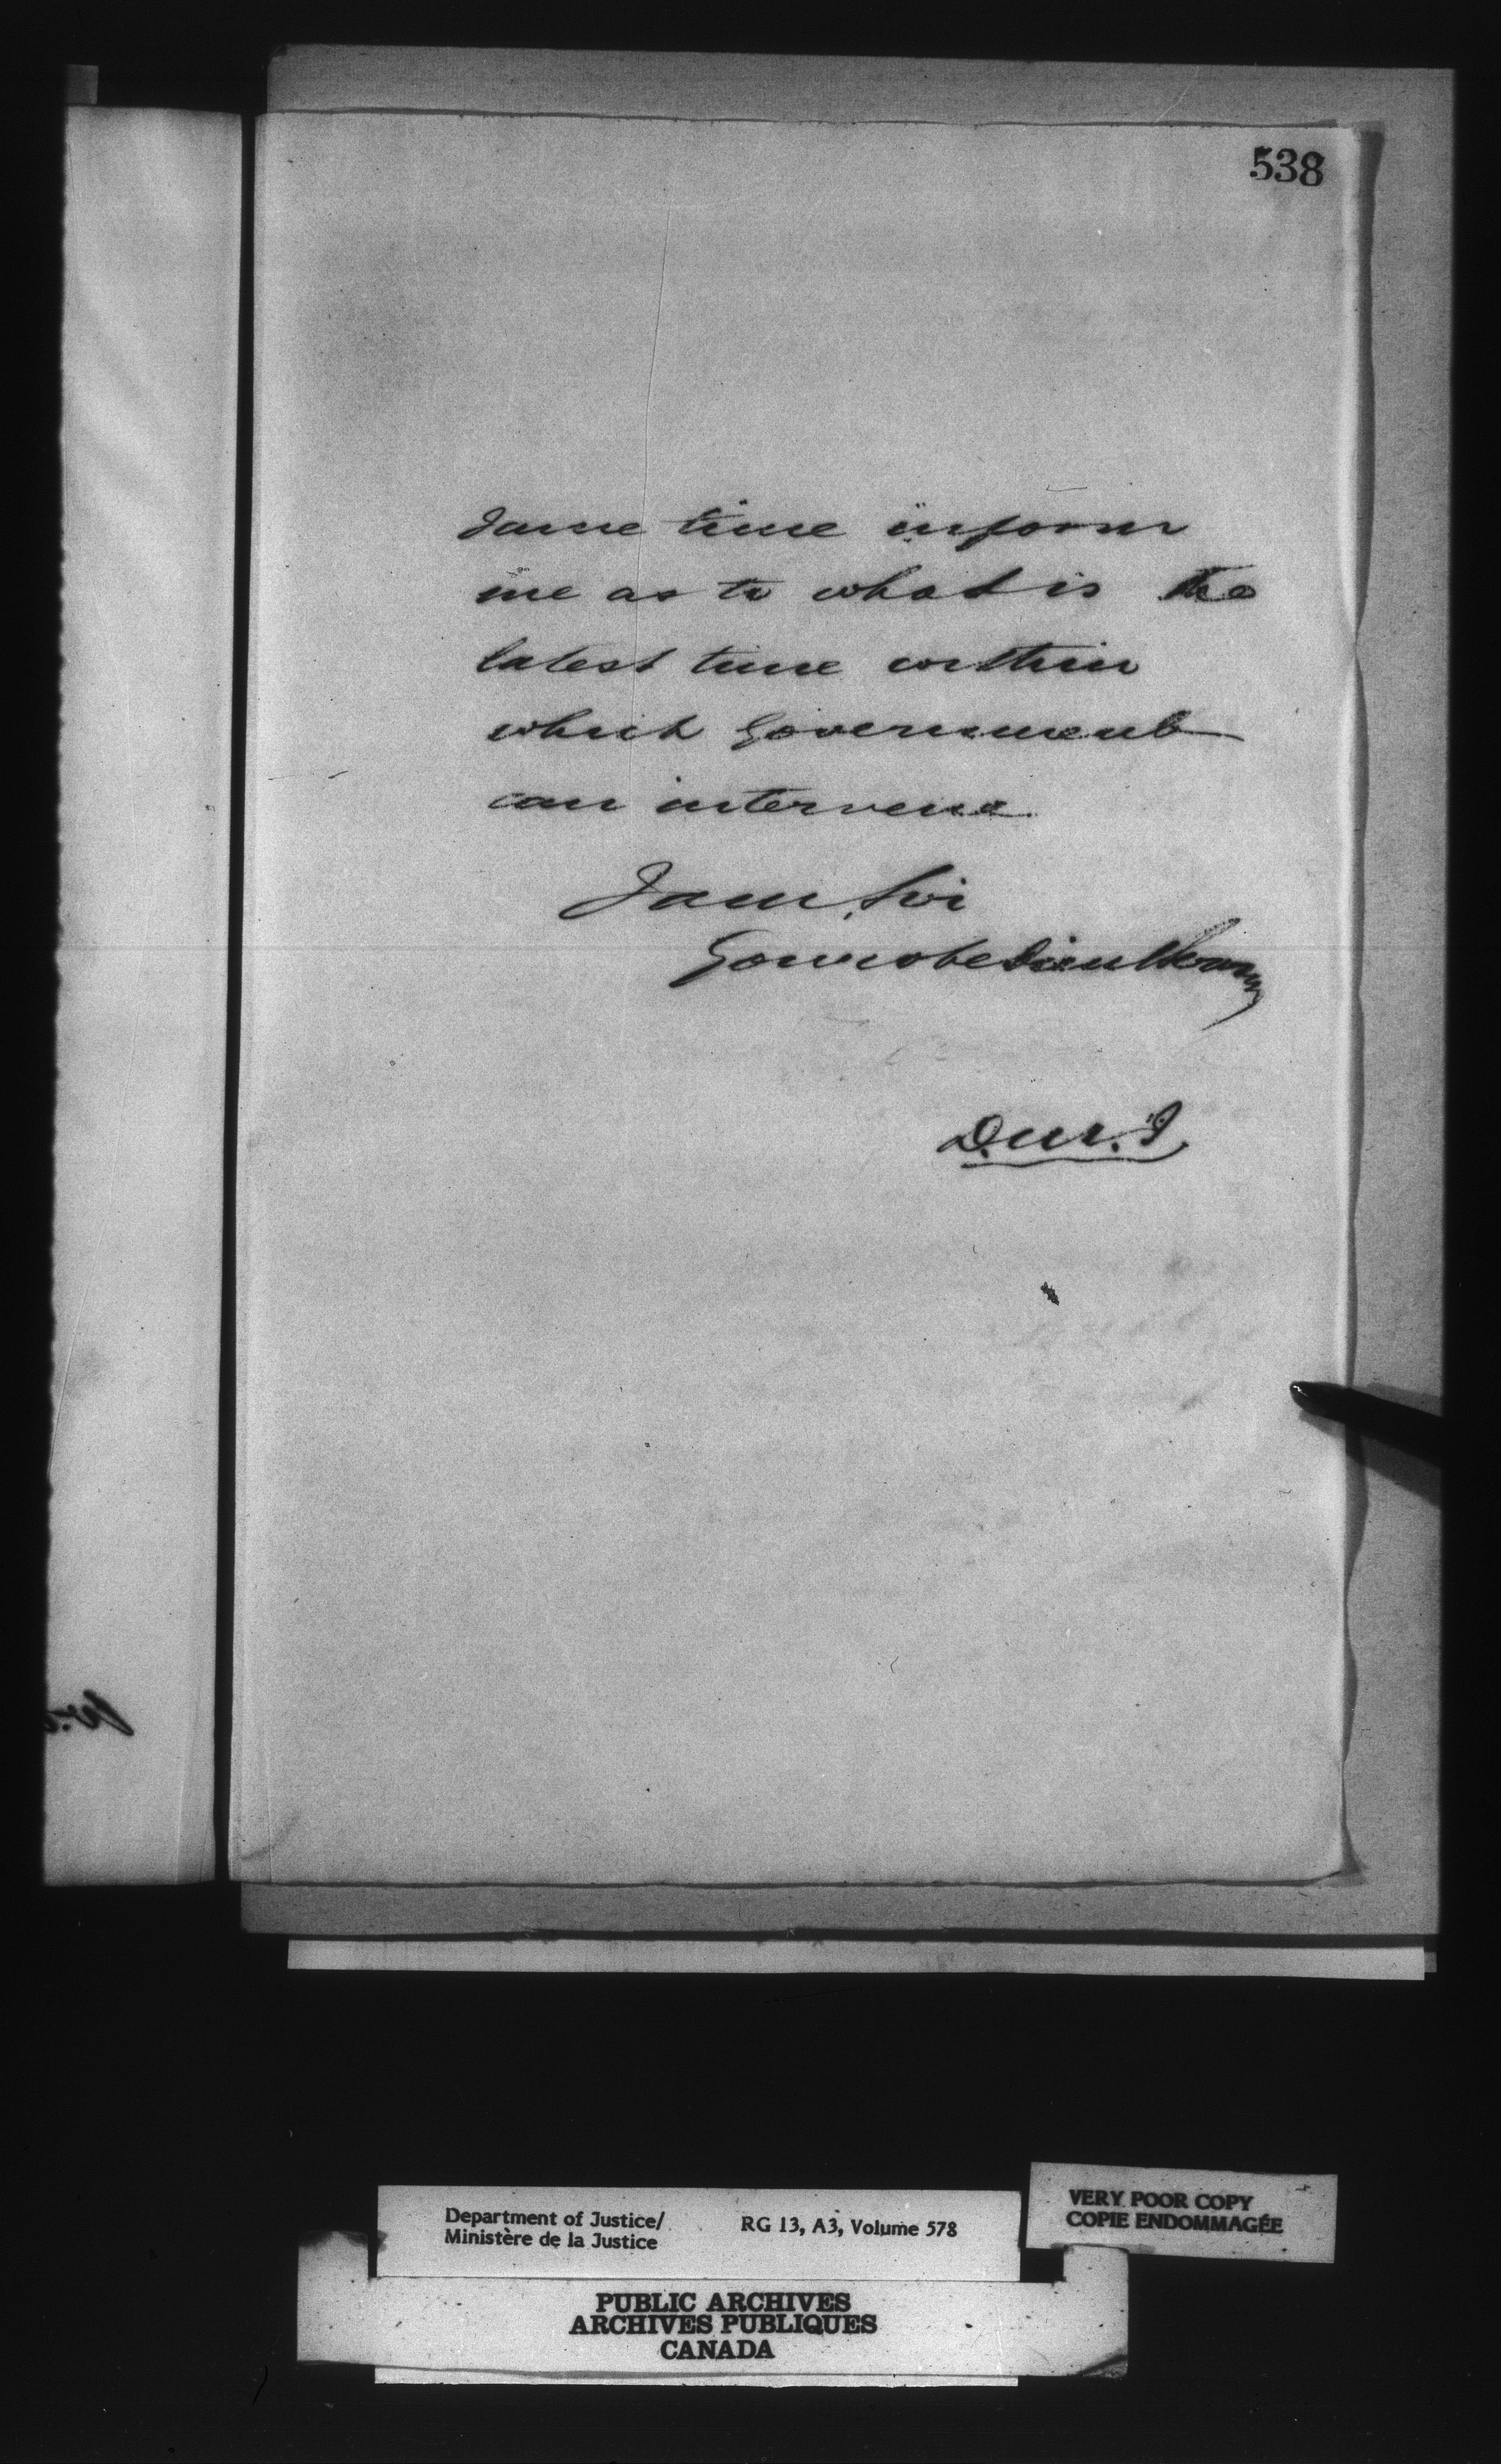 538
same time inform
me as to what is the
latest time within
which Government
can intervene
I am, Sir
Your obedient Servant
D.M.J.
Department of Justice/
Ministère de la Justice
RG 13, A3, Volume 578
VERY POOR COPY
COPIE ENDOMMAGÉE
PUBLIC ARCHIVES
ARCHIVES PUBLIQUES
CANADA